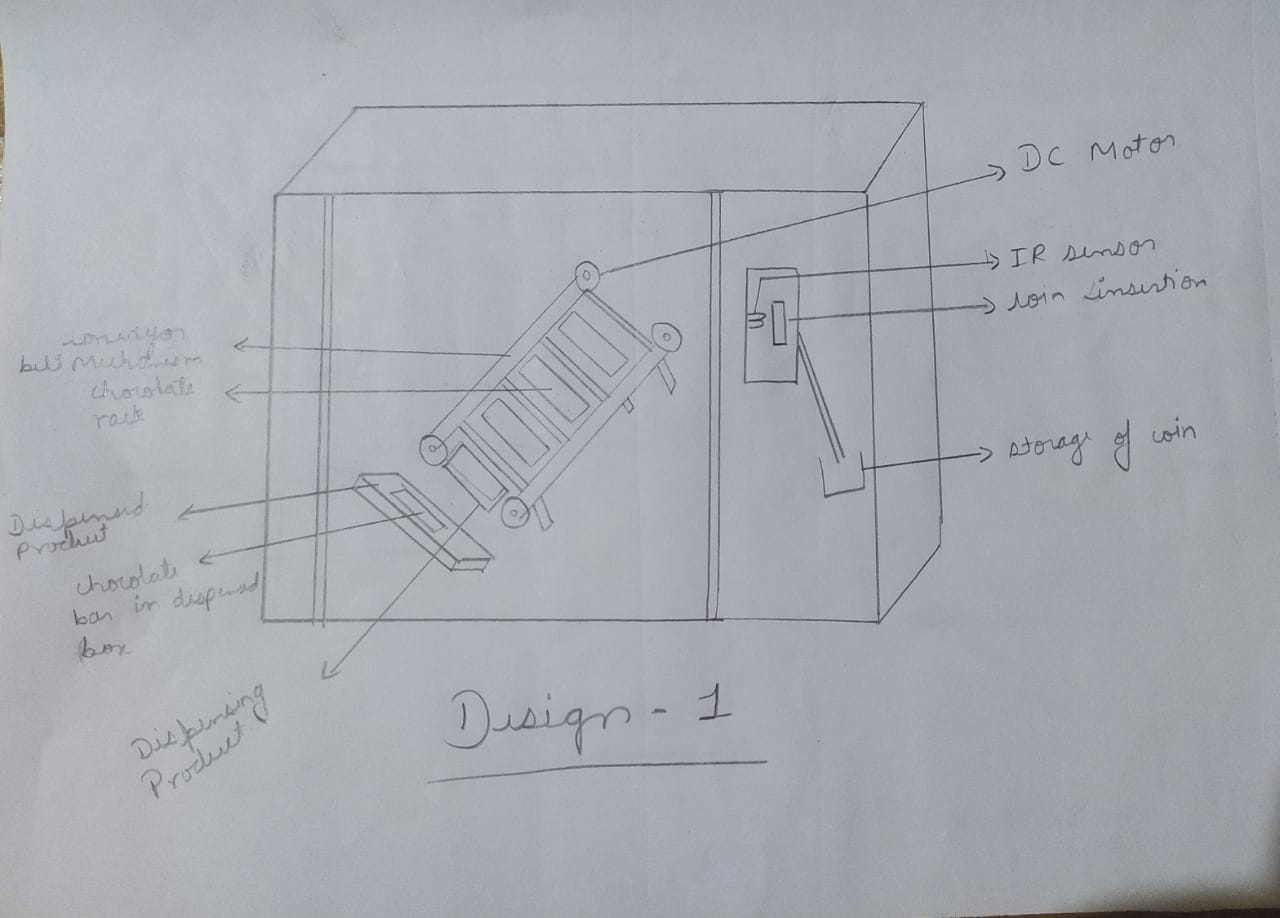 DC Motor
IR sensor
coin insertion
conveyor
belt Mechanism
chocolate
rack
storage of coin
Dispensed
Product
chocolate
bar in dispensed
box
Dispensing
Product
Design - 1